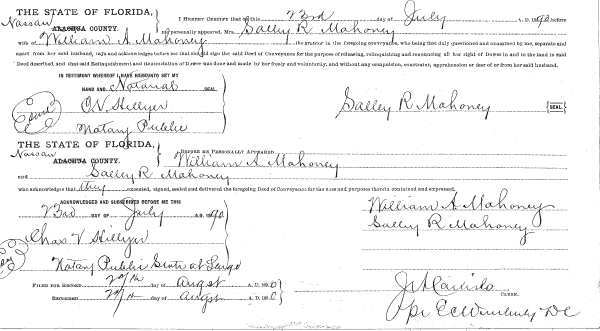 THE STATE OF FLORIDA,
Nassau
ALACHUA COUNTY.
I HEREBY CERTIFY that on this 23rd day of July A. D. 1890 before
me personally appeared, Mrs. Salley R Mahoney
wife of William A Mahoney the grantor in the foregoing conveyance, who being first duly questioned and examined by me, separate and
apart from her said husband, says and acknowledges before me that she did sign the said Deed of Conveyance for the purpose of relinquishing and renouncing all her right of Dower in and to the land in said
Deed described, and that said Relinquishment and Renunciation of Dower was done and made by her freely and voluntarily, and without any compulsion, constraint, apprehension or fear of or from her said husband.
IN TESTIMONY WHEREOF I HAVE HEREUNTO SET MY
HAND AND Notarial SEAL
Seal
Hillyer
Notary Public
Salley R Mahoney
SEAL
THE STATE OF FLORIDA,
Nassau
ALACHUA COUNTY.
BEFORE ME PERSONALLY APPEARED William A Mahoney
and Salley R Mahoney
who acknowledges that they executed, signed, sealed and delivered the foregoing Deed of Conveyance for the uses and purposes therein contained and expressed.
ACKNOWLEDGED AND SUBSCRIBED BEFORE ME THIS
23rd DAY OF July A.D. 1890
Chas V Hillyer
Notary Public State at Large
William A Mahoney
Salley R Mahoney
FILED FOR RECORD day of Augst A. D. 1890
RECORDED day of Augst A. D. 1890
CLERK.
DC